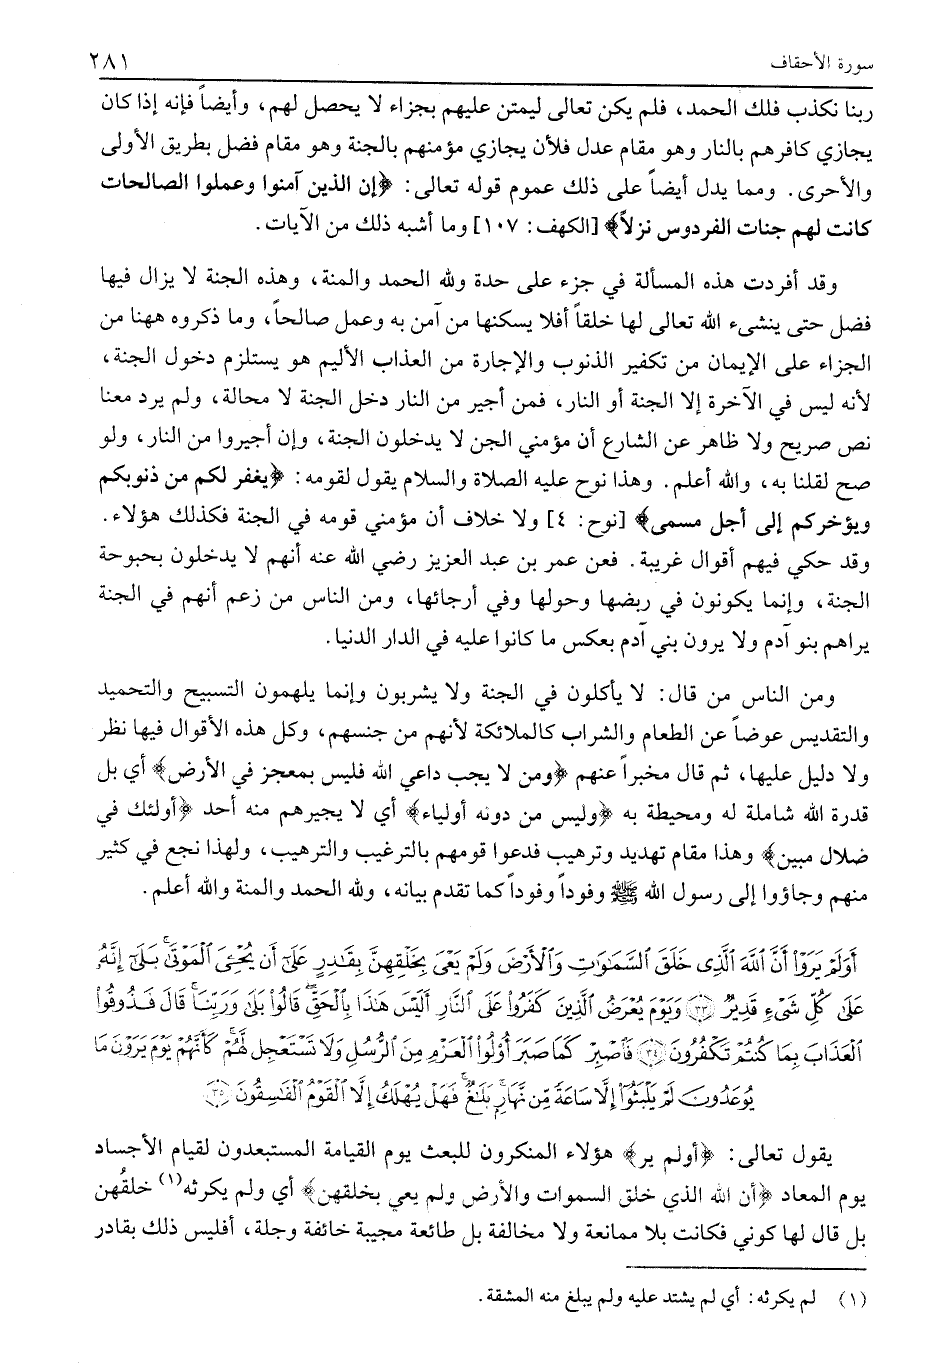 سورة الأحقاف ٢٨١
ربنا نكذب فلك الحمد، فلم يكن تعالى ليمتن عليهم بجزاء لا يحصل لهم، وأيضاً فإنه إذا كان
يجازي كافرهم بالنار وهو مقام عدل فلأن يجازي مؤمنهم بالجنة وهو مقام فضل بطريق الأولى
والأحرى. ومما يدل أيضاً على ذلك عموم قوله تعالى: ﴿إن الذين آمنوا وعملوا الصالحات
كانت لهم جنات الفردوس نزلاً﴾ [الكهف: ١٠٧] وما أشبه ذلك من الآيات.
وقد أفردت هذه المسألة في جزء على حدة ولله الحمد والمنة، وهذه الجنة لا يزال فيها
فضل حتى ينشىء الله تعالى لها خلقاً أفلا يسكنها من آمن به وعمل صالحاً، وما ذكروه ههنا من
الجزاء على الإيمان من تكفير الذنوب والإجارة من العذاب الأليم هو يستلزم دخول الجنة،
لأنه ليس في الآخرة إلا الجنة أو النار، فمن أجير من النار دخل الجنة لا محالة، ولم يرد معنا
نص صريح ولا ظاهر عن الشارع أن مؤمني الجن لا يدخلون الجنة، وإن أجيروا من النار، ولو
صح لقلنا به، والله أعلم. وهذا نوح عليه الصلاة والسلام يقول لقومه: ﴿يغفر لكم من ذنوبكم
ويؤخركم إلى أجل مسمى﴾ [نوح: ٤] ولا خلاف أن مؤمني قومه في الجنة فكذلك هؤلاء.
وقد حكي فيهم أقوال غريبة. فعن عمر بن عبد العزيز رضي الله عنه أنهم لا يدخلون بحبوحة
الجنة، وإنما يكونون في ربضها وحولها وفي أرجائها، ومن الناس من زعم أنهم في الجنة
يراهم بنو آدم ولا يرون بني آدم بعكس ما كانوا عليه في الدار الدنيا.
ومن الناس من قال: لا يأكلون في الجنة ولا يشربون وإنما يلهمون التسبيح والتحميد
والتقديس عوضاً عن الطعام والشراب كالملائكة لأنهم من جنسهم، وكل هذه الأقوال فيها نظر
ولا دليل عليها، ثم قال مخبراً عنهم ﴿ومن لا يجب داعي الله فليس بمعجز في الأرض﴾ أي بل
قدرة الله شاملة له ومحيطة به ﴿وليس من دونه أولياء﴾ أي لا يجيرهم منه أحد ﴿أولئك في
ضلال مبين﴾ وهذا مقام تهديد وترهيب فدعوا قومهم بالترغيب والترهيب، ولهذا نجع في كثير
منهم وجاؤوا إلى رسول الله ﷺ وفوداً وفوداً كما تقدم بيانه، ولله الحمد والمنة والله أعلم.
أَوَلَمْ يَرَوْا۟ أَنَّ ٱللَّهَ ٱلَّذِى خَلَقَ ٱلسَّمَـٰوَٰتِ وَٱلْأَرْضَ وَلَمْ يَعْىَ بِخَلْقِهِنَّ بِقَـٰدِرٍ عَلَىٰٓ أَن يُحْـِۧىَ ٱلْمَوْتَىٰ ۚ بَلَىٰٓ إِنَّهُۥ
عَلَىٰ كُلِّ شَىْءٍ قَدِيرٌ ٣٣ وَيَوْمَ يُعْرَضُ ٱلَّذِينَ كَفَرُوا۟ عَلَى ٱلنَّارِ أَلَيْسَ هَـٰذَا بِٱلْحَقِّ ۖ قَالُوا۟ بَلَىٰ وَرَبِّنَا ۚ قَالَ فَذُوقُوا۟
ٱلْعَذَابَ بِمَا كُنتُمْ تَكْفُرُونَ ٣٤ فَٱصْبِرْ كَمَا صَبَرَ أُو۟لُوا۟ ٱلْعَزْمِ مِنَ ٱلرُّسُلِ وَلَا تَسْتَعْجِل لَّهُمْ ۚ كَأَنَّهُمْ يَوْمَ يَرَوْنَ مَا
يُوعَدُونَ لَمْ يَلْبَثُوٓا۟ إِلَّا سَاعَةً مِّن نَّهَارٍۭ ۚ بَلَـٰغٌ ۚ فَهَلْ يُهْلَكُ إِلَّا ٱلْقَوْمُ ٱلْفَـٰسِقُونَ ٣٥
يقول تعالى: ﴿أولم ير﴾ هؤلاء المنكرون للبعث يوم القيامة المستبعدون لقيام الأجساد
يوم المعاد ﴿أن الله الذي خلق السموات والأرض ولم يعي بخلقهن﴾ أي ولم يكرثه(١) خلقُهن
بل قال لها كوني فكانت بلا ممانعة ولا مخالفة بل طائعة مجيبة خائفة وجلة، أفليس ذلك بقادر
(١) لم يكرثه: أي لم يشتد عليه ولم يبلغ منه المشقة.